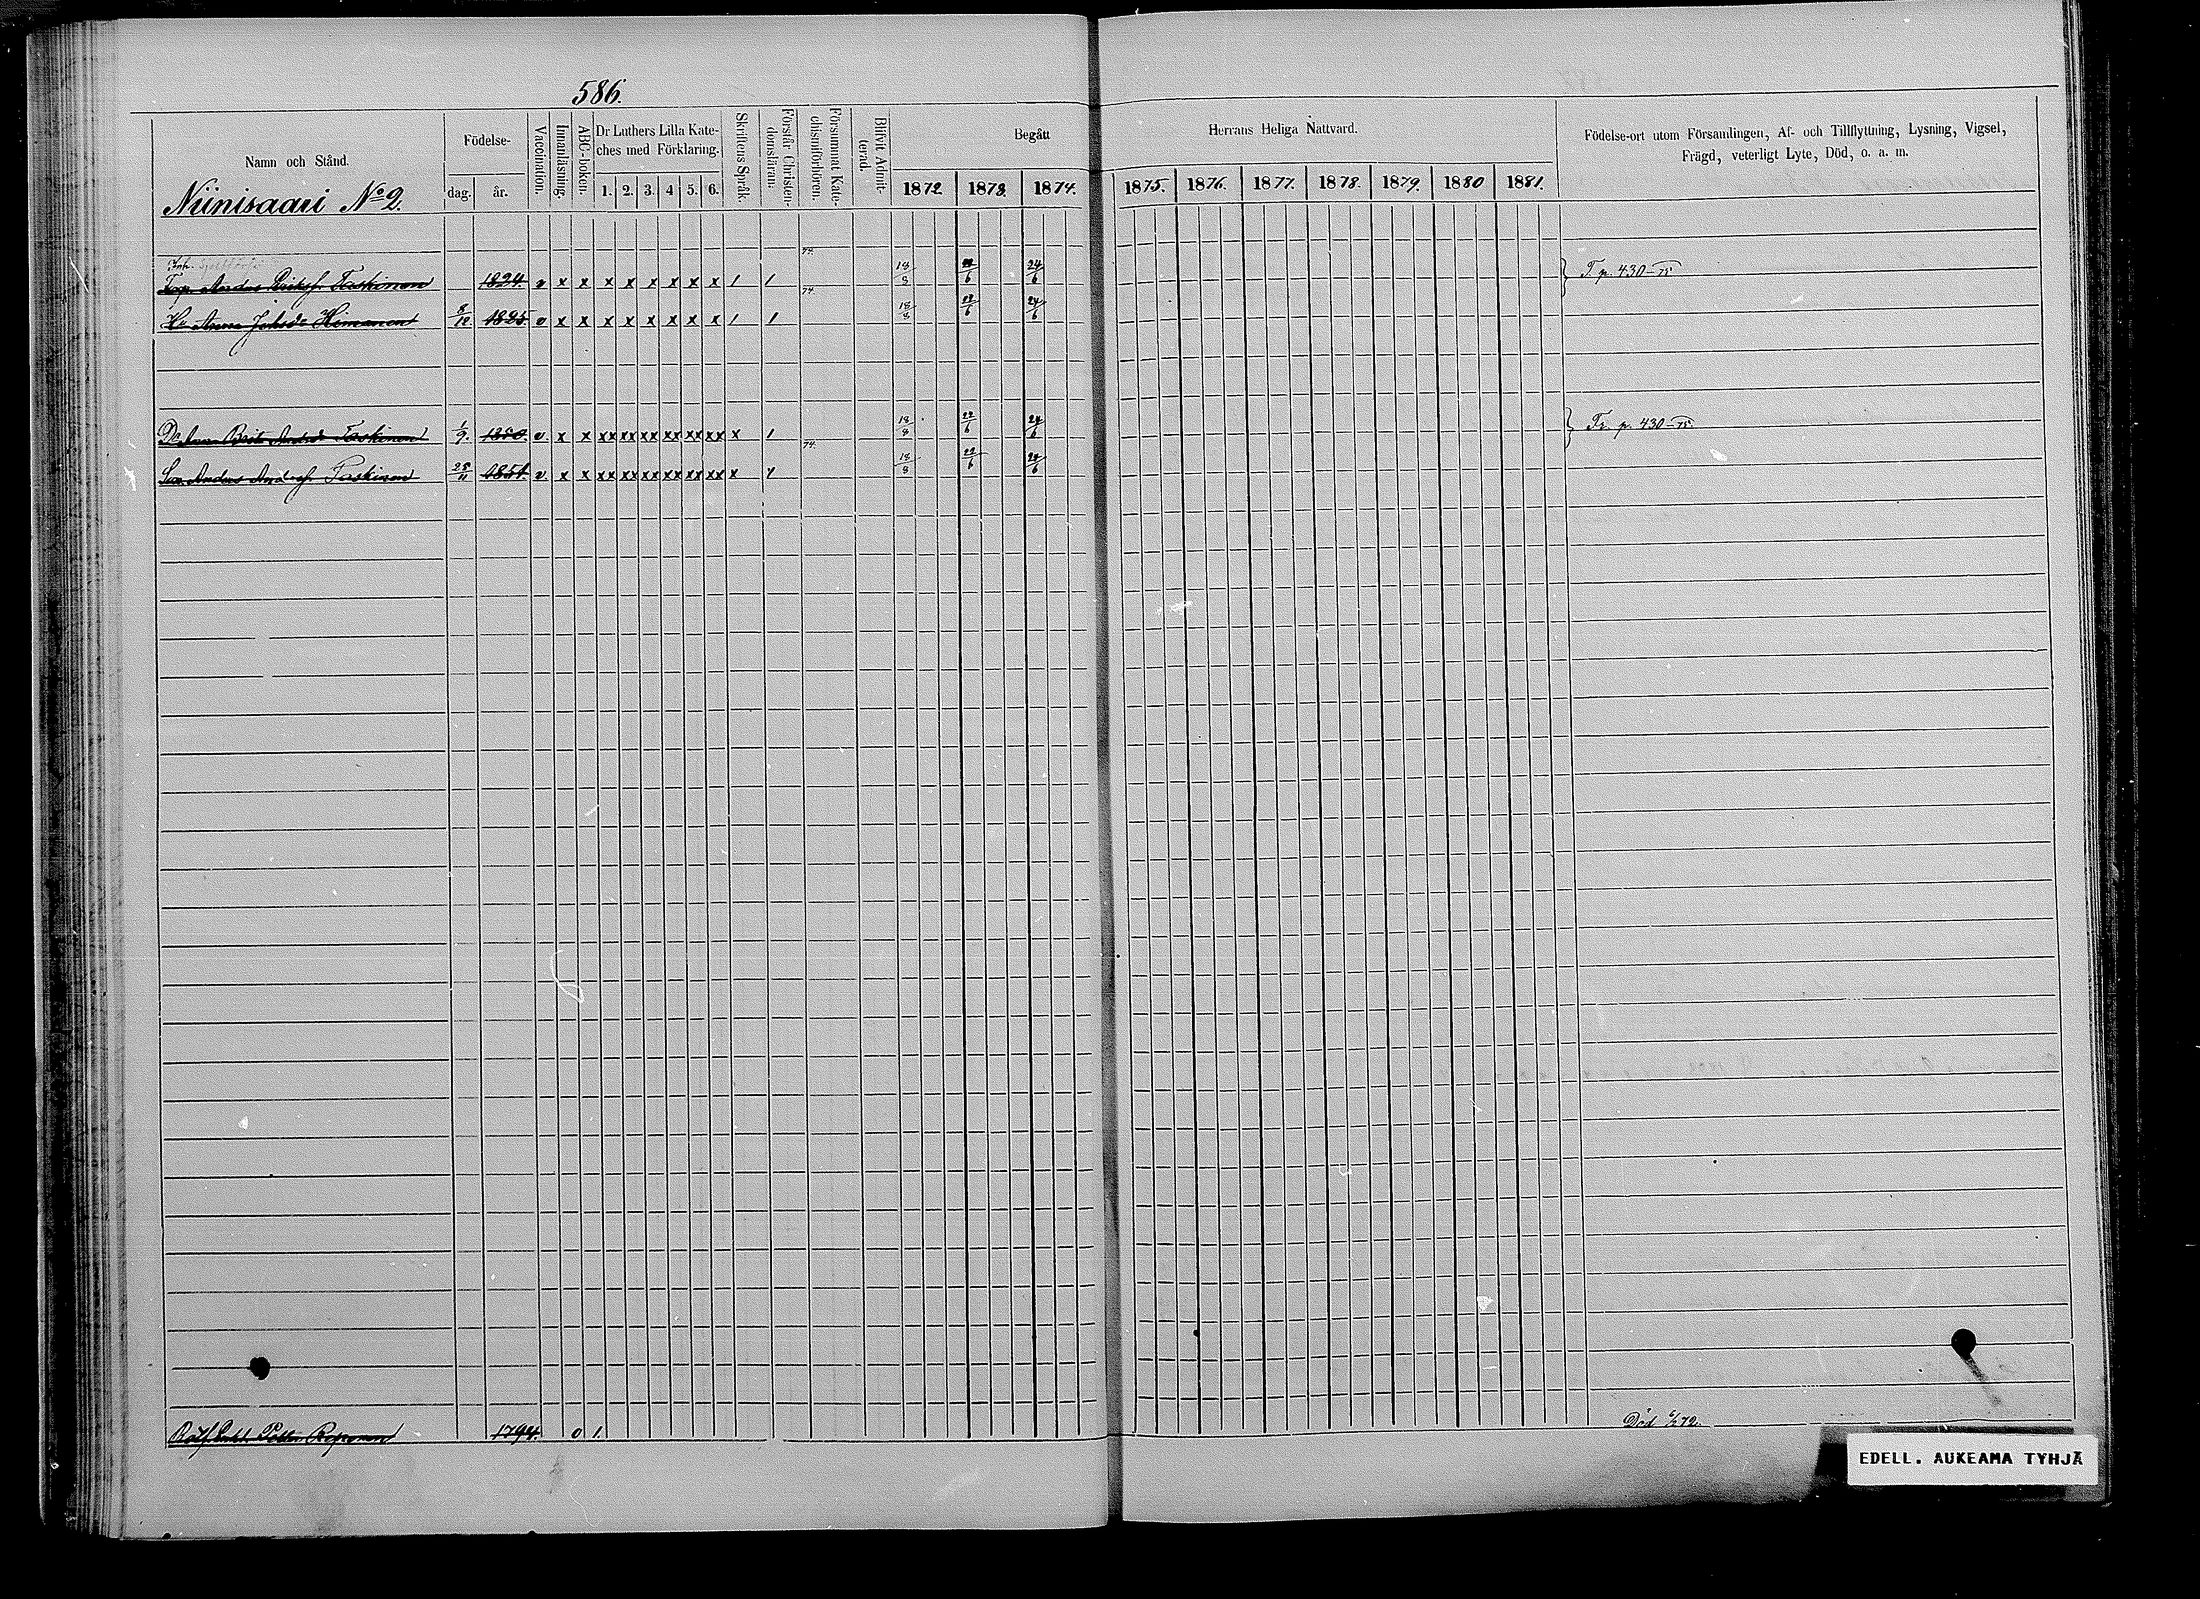 586.
Namn och Stånd.
Födelse-
dag.
år.
Vaccination.
Innanläsning.
ABC-boken.
Dr Luthers Lilla Kate-
ches med Förklaring.
1. 2. 3. 4 5. 6.
Skriftens Språk.
Förstår Christen-
domsläran.
Försummat Kate-
chismiförhören.
Blifvit Admit-
terad.
Begått
Herrans Heliga Nattvard.
1872 1873. 1874. 1875. 1876. 1877. 1878. 1879. 1880 1881.
Födelse-ort utom Församlingen, Af- och Tillflyttning, Lysning, Vigsel,
Frägd, veterligt Lyte, Död, o. a. m.
Niinisaari No 2.
Anders Eriksf. Taskinen 1824. v x x x x x x x x 1 1 74. 18/8 22/6 24/6 T. p. 430-75
Hu Anna Johsdr Himanen 8/12 1825 v x x x x x x x x 1 1 74. 18/8 22/6 24/6
Dr Anna Brita Andsdr Taskinen 1/9. 1850. v. x x xx xx xx xx xx xx x 1 18/8 22/6 24/6 Tr. p. 430-75
Son Anders Andersf. Taskinen 25/11 1851. v. x x xx xx xx xx xx xx x 1 74. 18/8 22/6 24/6
1794. 0 1. Död 6/2 72.
EDELL. AUKEAMA TYHJÄ